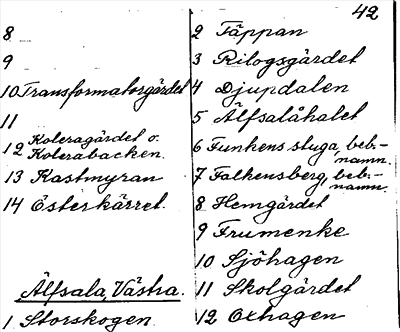 42
8
9
10 Transformatorgärdet
11
12 Koleragärdet o.
Kolerabacken.
13 Kastmyran
14 Österkärret.
Älfsala, Västra.
1 Storskogen.
2 Täppan
3 Rilogsgärdet
4 Djupdalen
5 Älfsalåhalet
6 Funkens stuga, beb.-
namn.
7 Falkensberg, beb.-
namn.
8 Hemgärdet
9 Frumenke
10 Sjöhagen
11 Skolgärdet
12 Oxhagen